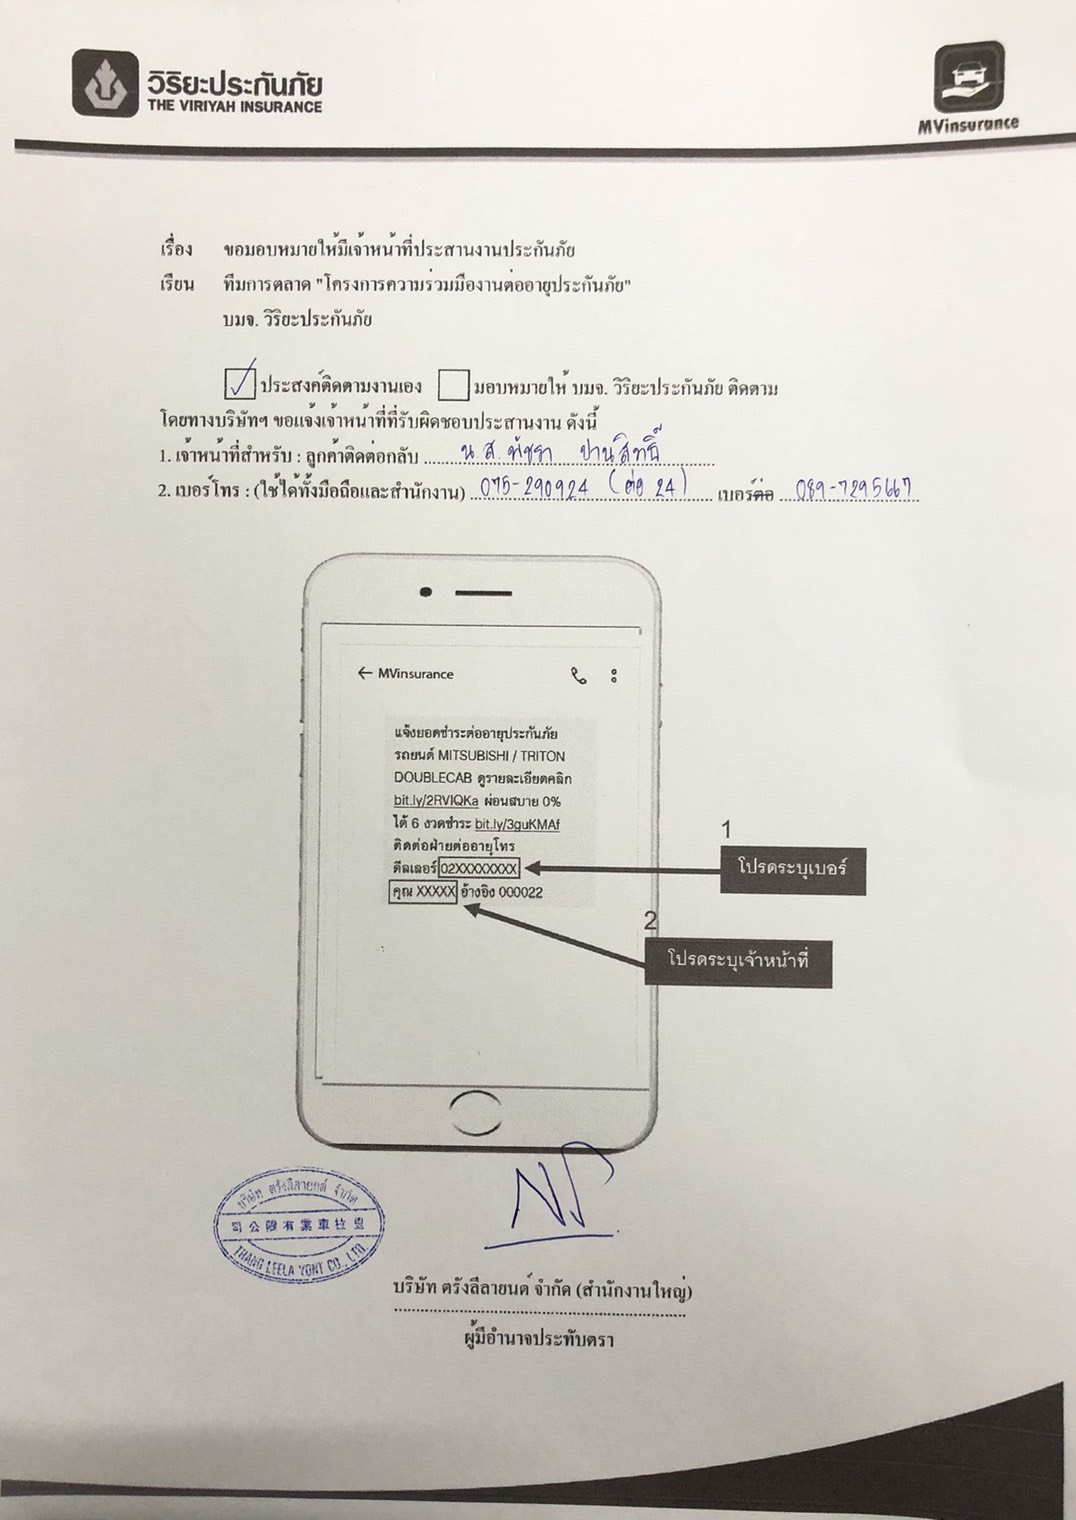 วิริยะประกันภัย
THE VIRIYAH INSURANCE
MVinsurance
เรื่อง ขอมอบหมายให้มีเจ้าหน้าที่ประสานงานประกันภัย
เรียน ทีมการตลาด "โครงการความร่วมมืองานต่ออายุประกันภัย"
บมจ. วิริยะประกันภัย
ประสงค์ติดตามงานเอง มอบหมายให้ บมจ. วิริยะประกันภัย ติดตาม
โดยทางบริษัทฯ ขอแจ้งเจ้าหน้าที่ที่รับผิดชอบประสานงาน ดังนี้
1. เจ้าหน้าที่สำหรับ : ลูกค้าติดต่อกลับ น.ส. พัชรา ปานสิทธิ์
2. เบอร์โทร : (ใช้ได้ทั้งมือถือและสำนักงาน) 075-290924 (ต่อ 24) เบอร์ต่อ 089-7295667
MVinsurance
แจ้งยอดชำระต่ออายุประกันภัย
รถยนต์ MITSUBISHI / TRITON
DOUBLECAB ดูรายละเอียดคลิก
bit.ly/2RVIQKa ผ่อนสบาย 0%
ได้ 6 งวดชำระ bit.ly/3guKMAf
ติดต่อฝ่ายต่ออายุโทร
ดีลเลอร์ 02XXXXXXXX
คุณ XXXXX อ้างอิง 000022
1
โปรดระบุเบอร์
2
โปรดระบุเจ้าหน้าที่
บริษัท ตรังลีลายนต์ จำกัด
司公限有業車拉
TRANG LEELA YONT CO., LTD.
บริษัท ตรังลีลายนต์ จำกัด (สำนักงานใหญ่)
ผู้มีอำนาจประทับตรา